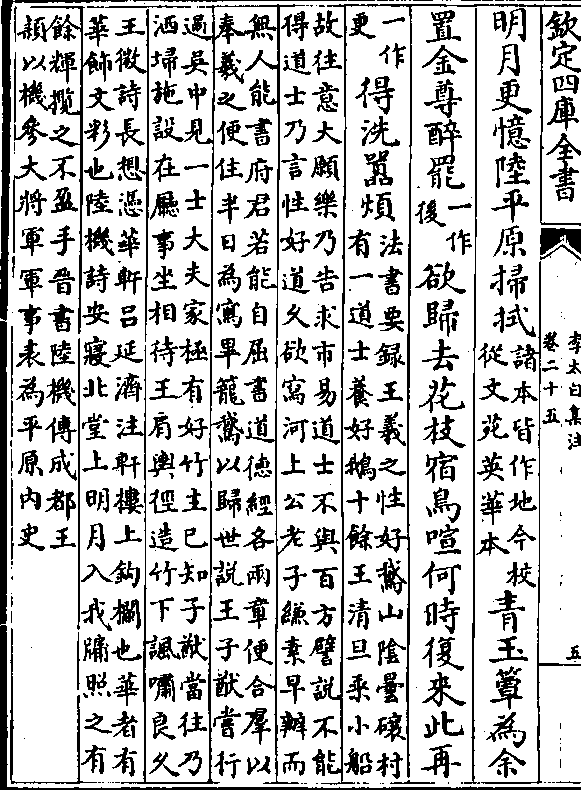 欽定四庫全書
李太白集注
卷二十五
五
明月更憶陸平原掃拭諸本皆作地今校
從文苑英華本青玉簟為余
置金尊醉罷一作
後欲歸去花枝宿鳥喧何時復來此再
一作
更得洗囂煩法書要録王羲之性好鵞山陰曇村
有一道士養好鵝十餘王清旦乘小船
故往意大願樂乃告求市易道士不與百方譬説不能
得道士乃言性好道久欲寫河上公老子縑素早辦而
無人能書府君若能自屈書道德經各兩章便合羣以
奉羲之便住半日為寫畢籠鵞以歸世説王子猷嘗行
過吳中見一士大夫家極有好竹主已知子猷當往乃
洒埽施設在廳事坐相待王肩輿徑造竹下諷嘯良久
王微詩長想憑華軒呂延濟注軒樓上鈎欄也華者有
華飾文彩也陸機詩安寢北堂上明月入我牖照之有
餘輝攬之不盈手晉書陸機傳成都王
頴以機參大將軍軍事表為平原内史